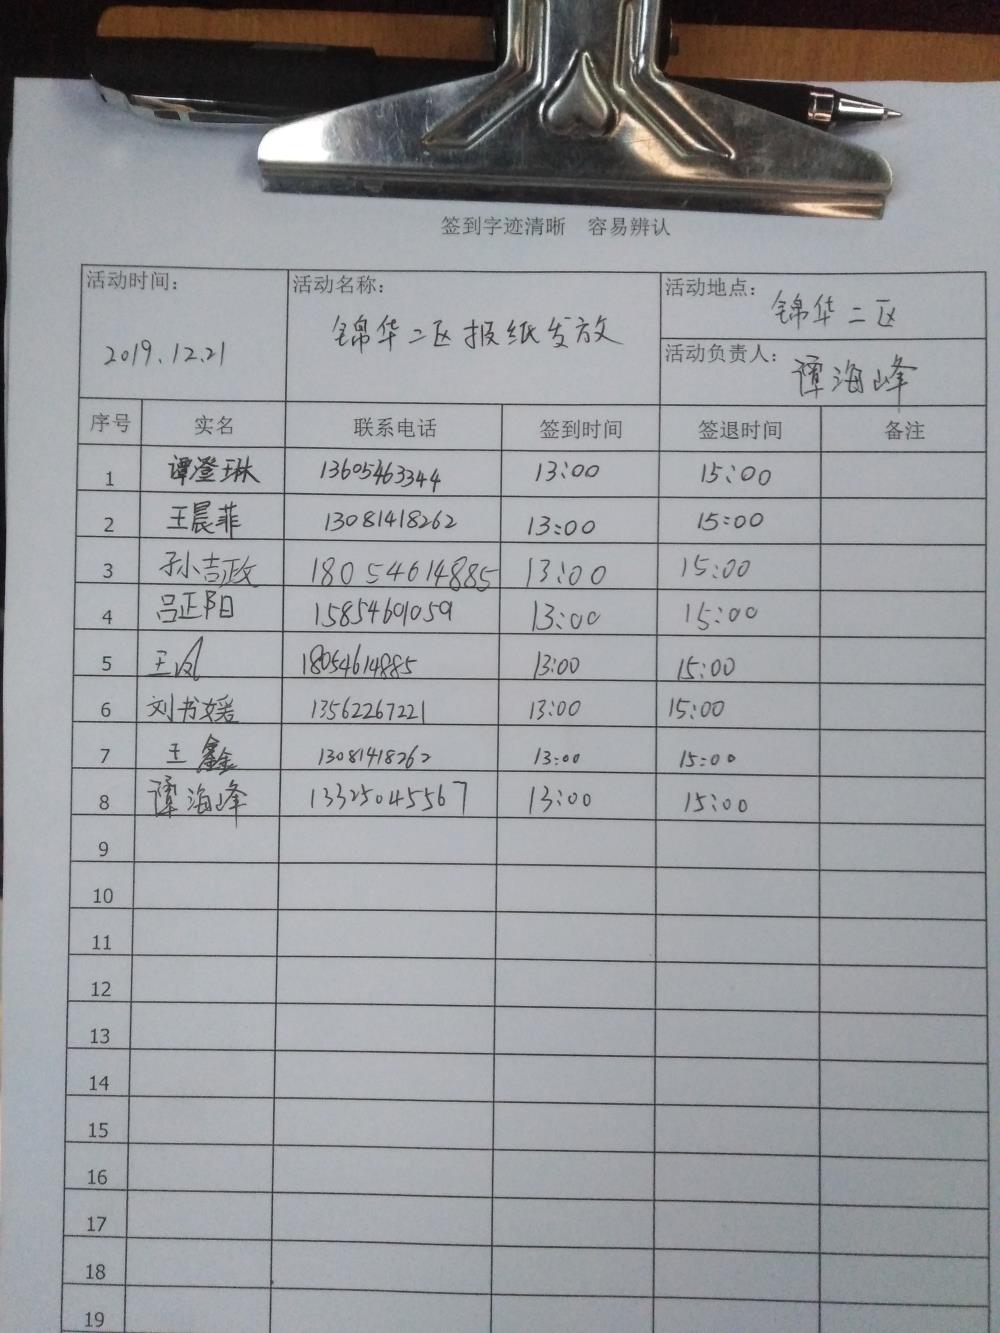 签到字迹清晰 容易辨认
活动时间： 活动名称： 活动地点： 锦华二区
2019.12.21 锦华二区报纸发放
活动负责人： 谭海峰
序号 实名 联系电话 签到时间 签退时间 备注
1 谭澄琳 13605463344 13:00 15:00
2 王晨菲 13081418262 13:00 15:00
3 孙吉政 18054614885 13:00 15:00
4 吕正阳 15854601059 13:00 15:00
5 王凤 18054614885 13:00 15:00
6 刘书媛 13562267221 13:00 15:00
7 王鑫 13081418262 13:00 15:00
8 谭海峰 13325045567 13:00 15:00
9
10
11
12
13
14
15
16
17
18
19